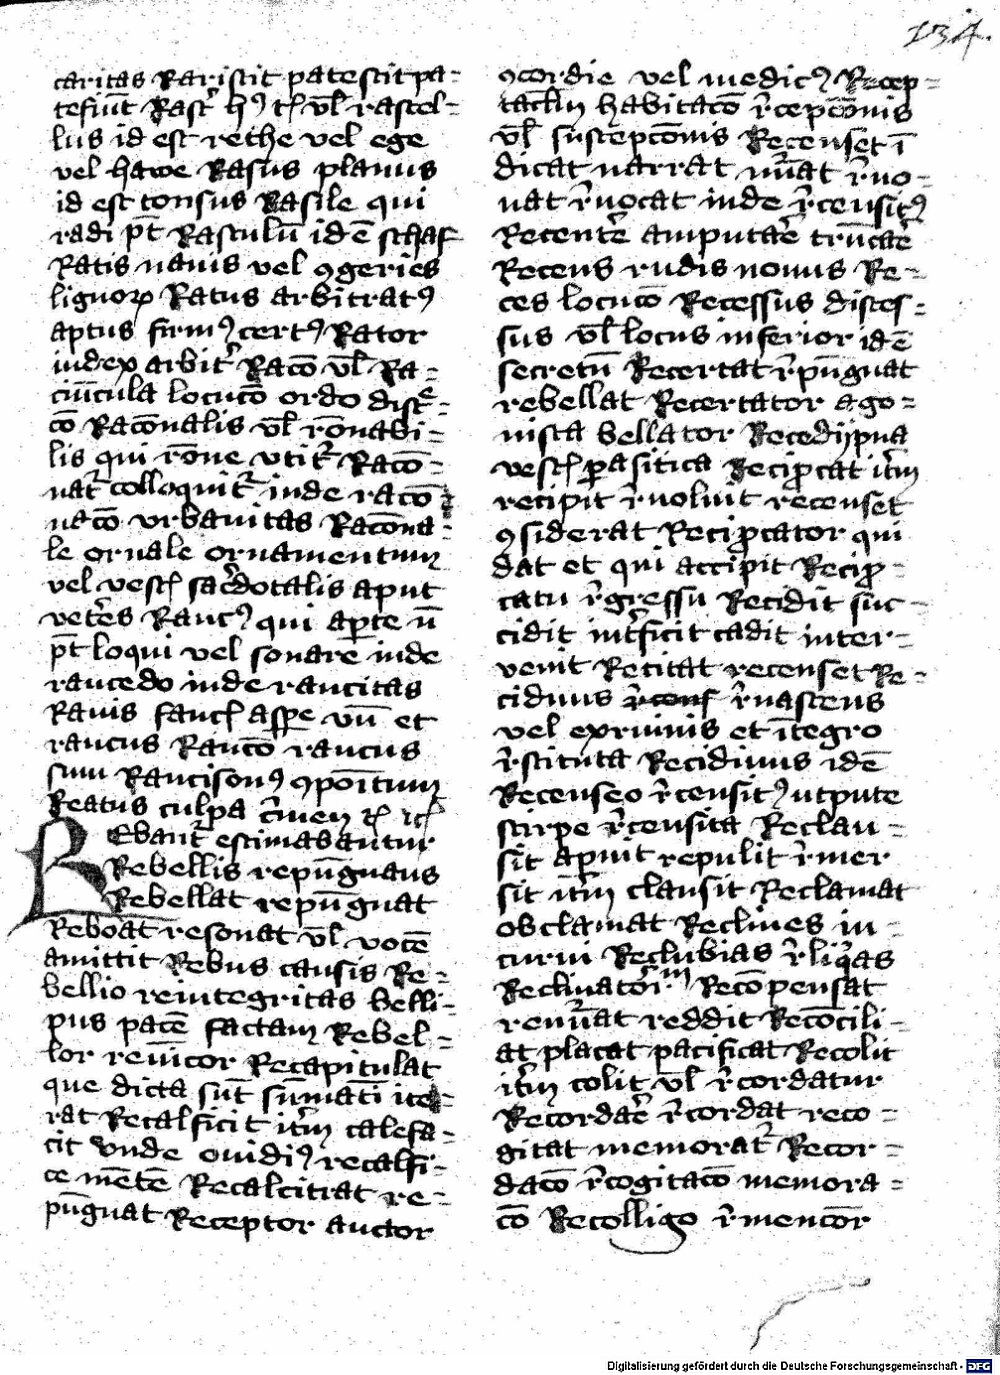 134.
caritas Rariscit patescit pa-
tefiūt Rastꝰ hꝰ vl̄ rastel-
lus id est reche vel ege
vel hawe Rasus planus
id est tonsus Rasile qui
radi pt̄ Rasculū id ē schaf
Ratis nauis vel ꝯgeries
lignoꝝ Ratus arbitratꝰ
aptus firmꝰ certꝰ Rator
iudex arbitˀ Racō vl̄ Ra-
ciūcula locucō ordo disce-
cō Racōnalis vl̄ rōnabi-
lis qui rōne vtitˀ Racō-
natˀ colloquitˀ inde racō
nacō vrbanitas Racōna-
le ornale ornamentum
vel vestꝭ sac̄dotalis aput
vetēs Raucꝰ qui aꝑte n̄
pt̄ loqui vel sonare inde
raucedo inde raucitas
Rauis faucꝭ asꝑe vn̄ et
raucus Raucō raucus
sum Raucisonꝰ ꝯpōitum
Reatus culpa c̄men
Rebantˀ estimabantur
Rebellis repūgnans
Rebellat repūgnat
Reboat resonat vl̄ vocē
amittit Rebus causis Re-
bellio reintegritas belli
pus pacē factam Rebel-
lor reuīcor Recapitulat
que dicta sūt sūmatī ite-
rat Recalficit itˀm calefa-
cit vnde ouidiꝰ recalfi-
ce mētē Recalcitrat re-
pūgnat Receptor auctor
ꝯcordie vel medicꝰ Recep-
tacl̄m habitacō rˀcepcōnis
vl̄ suscepcōnis Recenset ī
dicat narrat nūat rˀno-
uat rˀuocat inde rˀcensitꝰ
Recentēˀ amputaēˀ trūcaēˀ
Recens rudis nouus Re-
ces locucō Recessus disces-
sus vl̄ locus inferior id ē
secretū Recertat rˀpūgnat
rebellat Recertator ago-
nista bellator Recedijpna
vestꝭ ꝑasitica Recip̄cat itˀm
recipit rˀuoluit recenset
ꝯsiderat Recip̄cator qui
dat et qui accipit Recip̄-
catu rˀgressu Recidit suc-
cidit intˀficit cadit inter-
venit Recitat recenset Re-
cidiuus rˀnascens
vel exviuis et ītegro
rˀstituta Recidiuus idē
Recenseo rˀcensitꝰ utpute
stirpe rˀcensita Reclau-
sit apuit repulit rˀmer
sit itˀm clausit Reclamat
obclamat Reclines in-
curui Reclubias rˀliqˀas
Reclinatorˀm Recōpensat
renūat reddit Recōcili-
at placat pacificat Recolit
itˀm colit vl̄ rˀcordatur
Recordaēˀ rˀcordat reco-
gitat memoratˀ Recor-
dacō rˀcogitacō memora-
cō Recolligo rˀmencōr
Digitalisierung gefördert durch die Deutsche Forschungsgemeinschaft - DFG